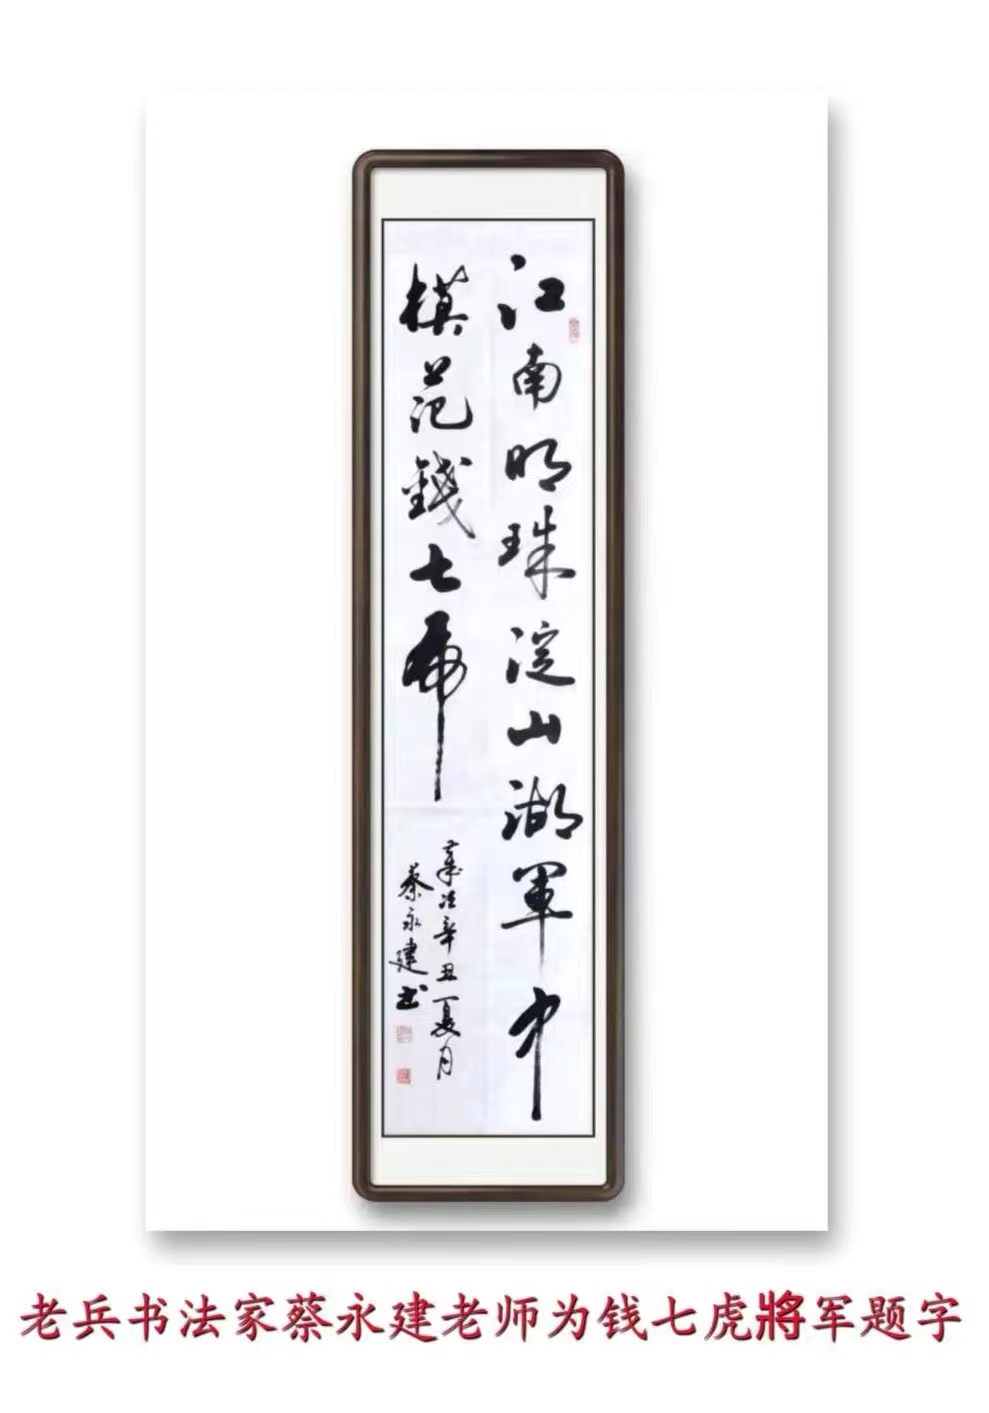 江南明珠淀山湖軍中
模范錢七虎
歲次辛丑夏月
蔡永建书
老兵书法家蔡永建老师为钱七虎將军题字